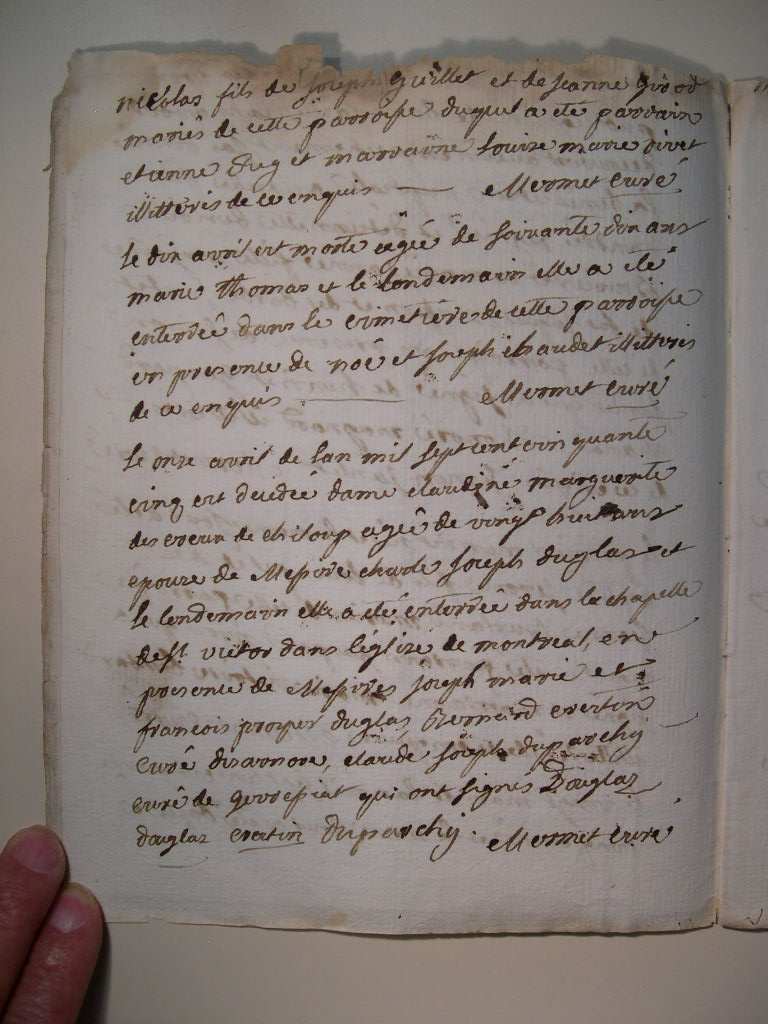 nicolas fils de joseph Guillet et de jeanne girod
mariés de cette parroisse duquel a eté parrain
etienne Aug et marraine louise marie rivet
illitteris de ce enquis — Mermet curé
le dix avril est morte agée de soixante dix ans
marie Thomas et le lendemain elle a eté
enterreé dans le cimetiére de cette parroisse
en presence de noé et joseph chaudet illitteris
de ce enquis — Mermet curé
le onze avril de lan mil sept cent cinquante
cinq est decedeé dame claudine marguerite
descreux de chiloup ageé de vingt huit ans
epouse de Messire charle joseph duglas et
le lendemain elle a eté enterreé dans la chapelle
de st victor dans l'église de montreal, en
presence de Messires joseph marie et
francois prosper duglas, Bernard evertin
Curé disarnore, claude joseph duparchy
curé de gevressiat qui ont signés Douglas
douglas evertin duparchy. Mermet curé